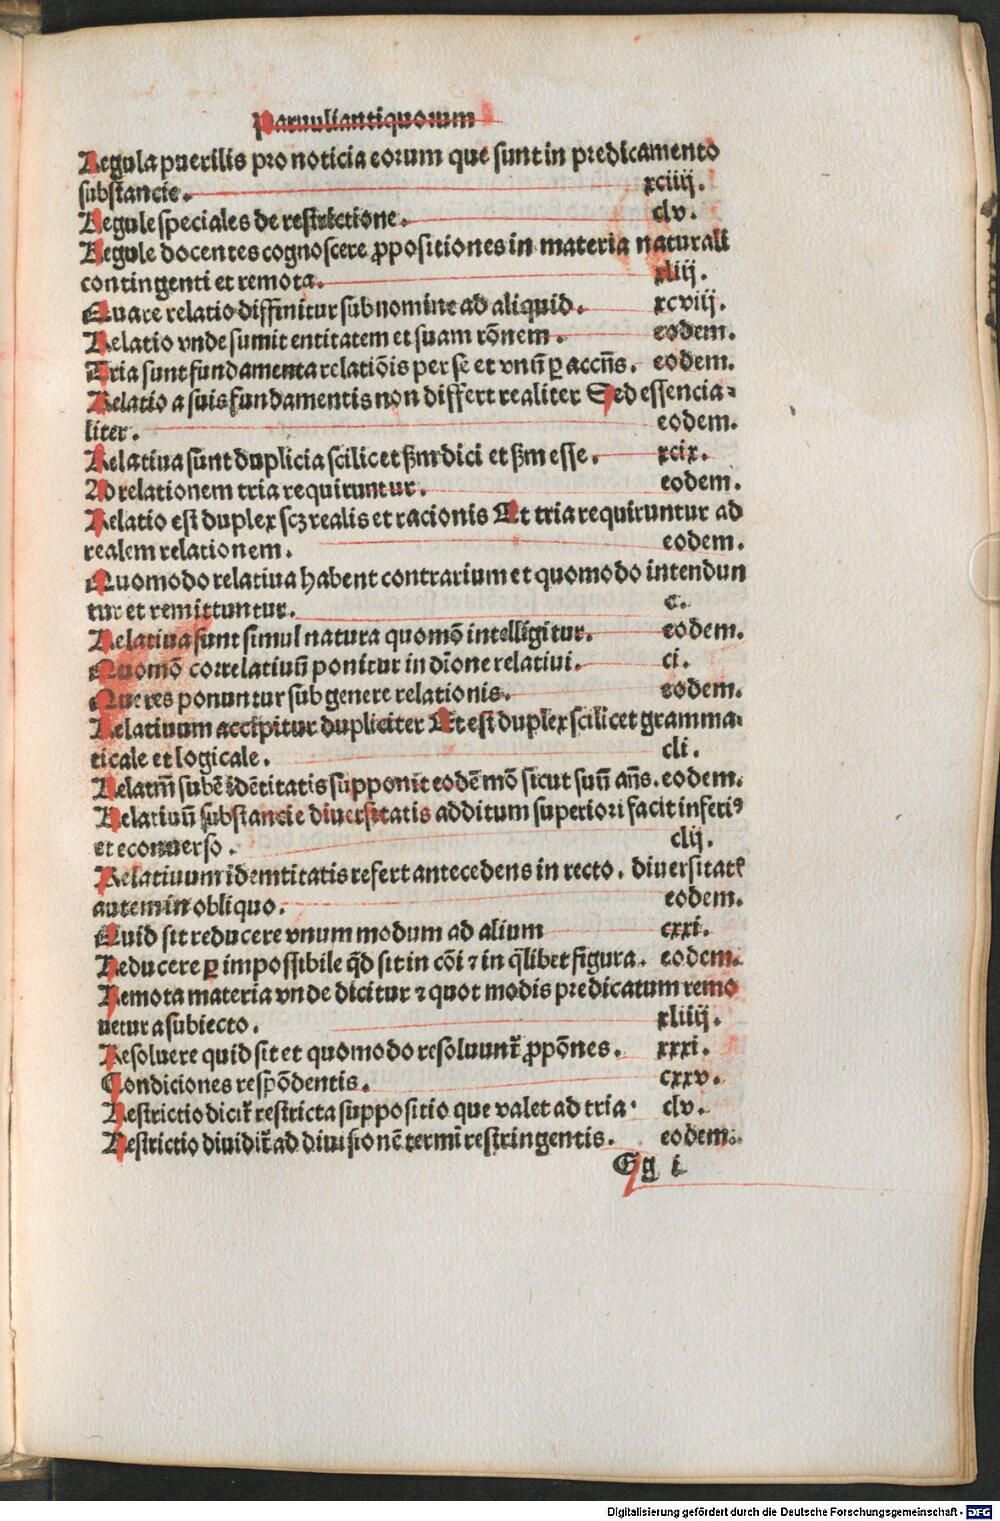 Paruuli antiquorum
Regula puerilis pro noticia eorum que sunt in predicamento
substancie. xciiij.
Regule speciales de restrictione. clv.
Regule docentes cognoscere ꝓpositiones in materia naturali
contingenti et remota. xliij.
Quare relatio diffinitur sub nomine ad aliquid. xcviij.
Relatio vnde sumit entitatem et suam rōnem. eodem.
Tria sunt fundamenta relatiōis per se et vnū ꝑ accñs. eodem.
Relatio a suis fundamentis non differt realiter Sed essencia-
liter. eodem.
Relatiua sunt duplicia scilicet ẜm dici et ẜm esse. xcix.
Ad relationem tria requiruntur. eodem.
Relatio est duplex scꝫ realis et racionis Et tria requiruntur ad
realem relationem. eodem.
Quomodo relatiua habent contrarium et quomodo intendun
tur et remittuntur. c.
Relatiua sunt simul natura quomō intelligitur. eodem.
Quomō correlatiuū ponitur in diōne relatiui. ci.
Que res ponuntur sub genere relationis. eodem.
Relatiuum accipitur dupliciter Et est duplex scilicet gramma-
ticale et logicale. cli.
Relatm̄ subē idētitatis supponit eodē mō sicut suū añs. eodem.
Relatiuū substancie diuersitatis additum superiori facit inferiꝰ
et econuerso. clij.
Relatiuum idemtitatis refert antecedens in recto. diuersitatꝭ
autem in obliquo. eodem.
Quid sit reducere vnum modum ad alium cxxi.
Reducere ꝑ impossibile qd̄ sit in cōi ⁊ in qͥlibet figura. eodem.
Remota materia vnde dicitur ⁊ quot modis predicatum remo
uetur a subiecto. xliiij.
Resoluere quid sit et quomodo resoluunt̃ ꝓpōnes. xxxi.
Condiciones respōdentis. cxxv.
Restrictio dicit̃ restricta suppositio que valet ad tria. clv.
Restrictio diuidit̃ ad diuisionē termī restringentis. eodem.
Gg i
Digitalisierung gefördert durch die Deutsche Forschungsgemeinschaft - DFG